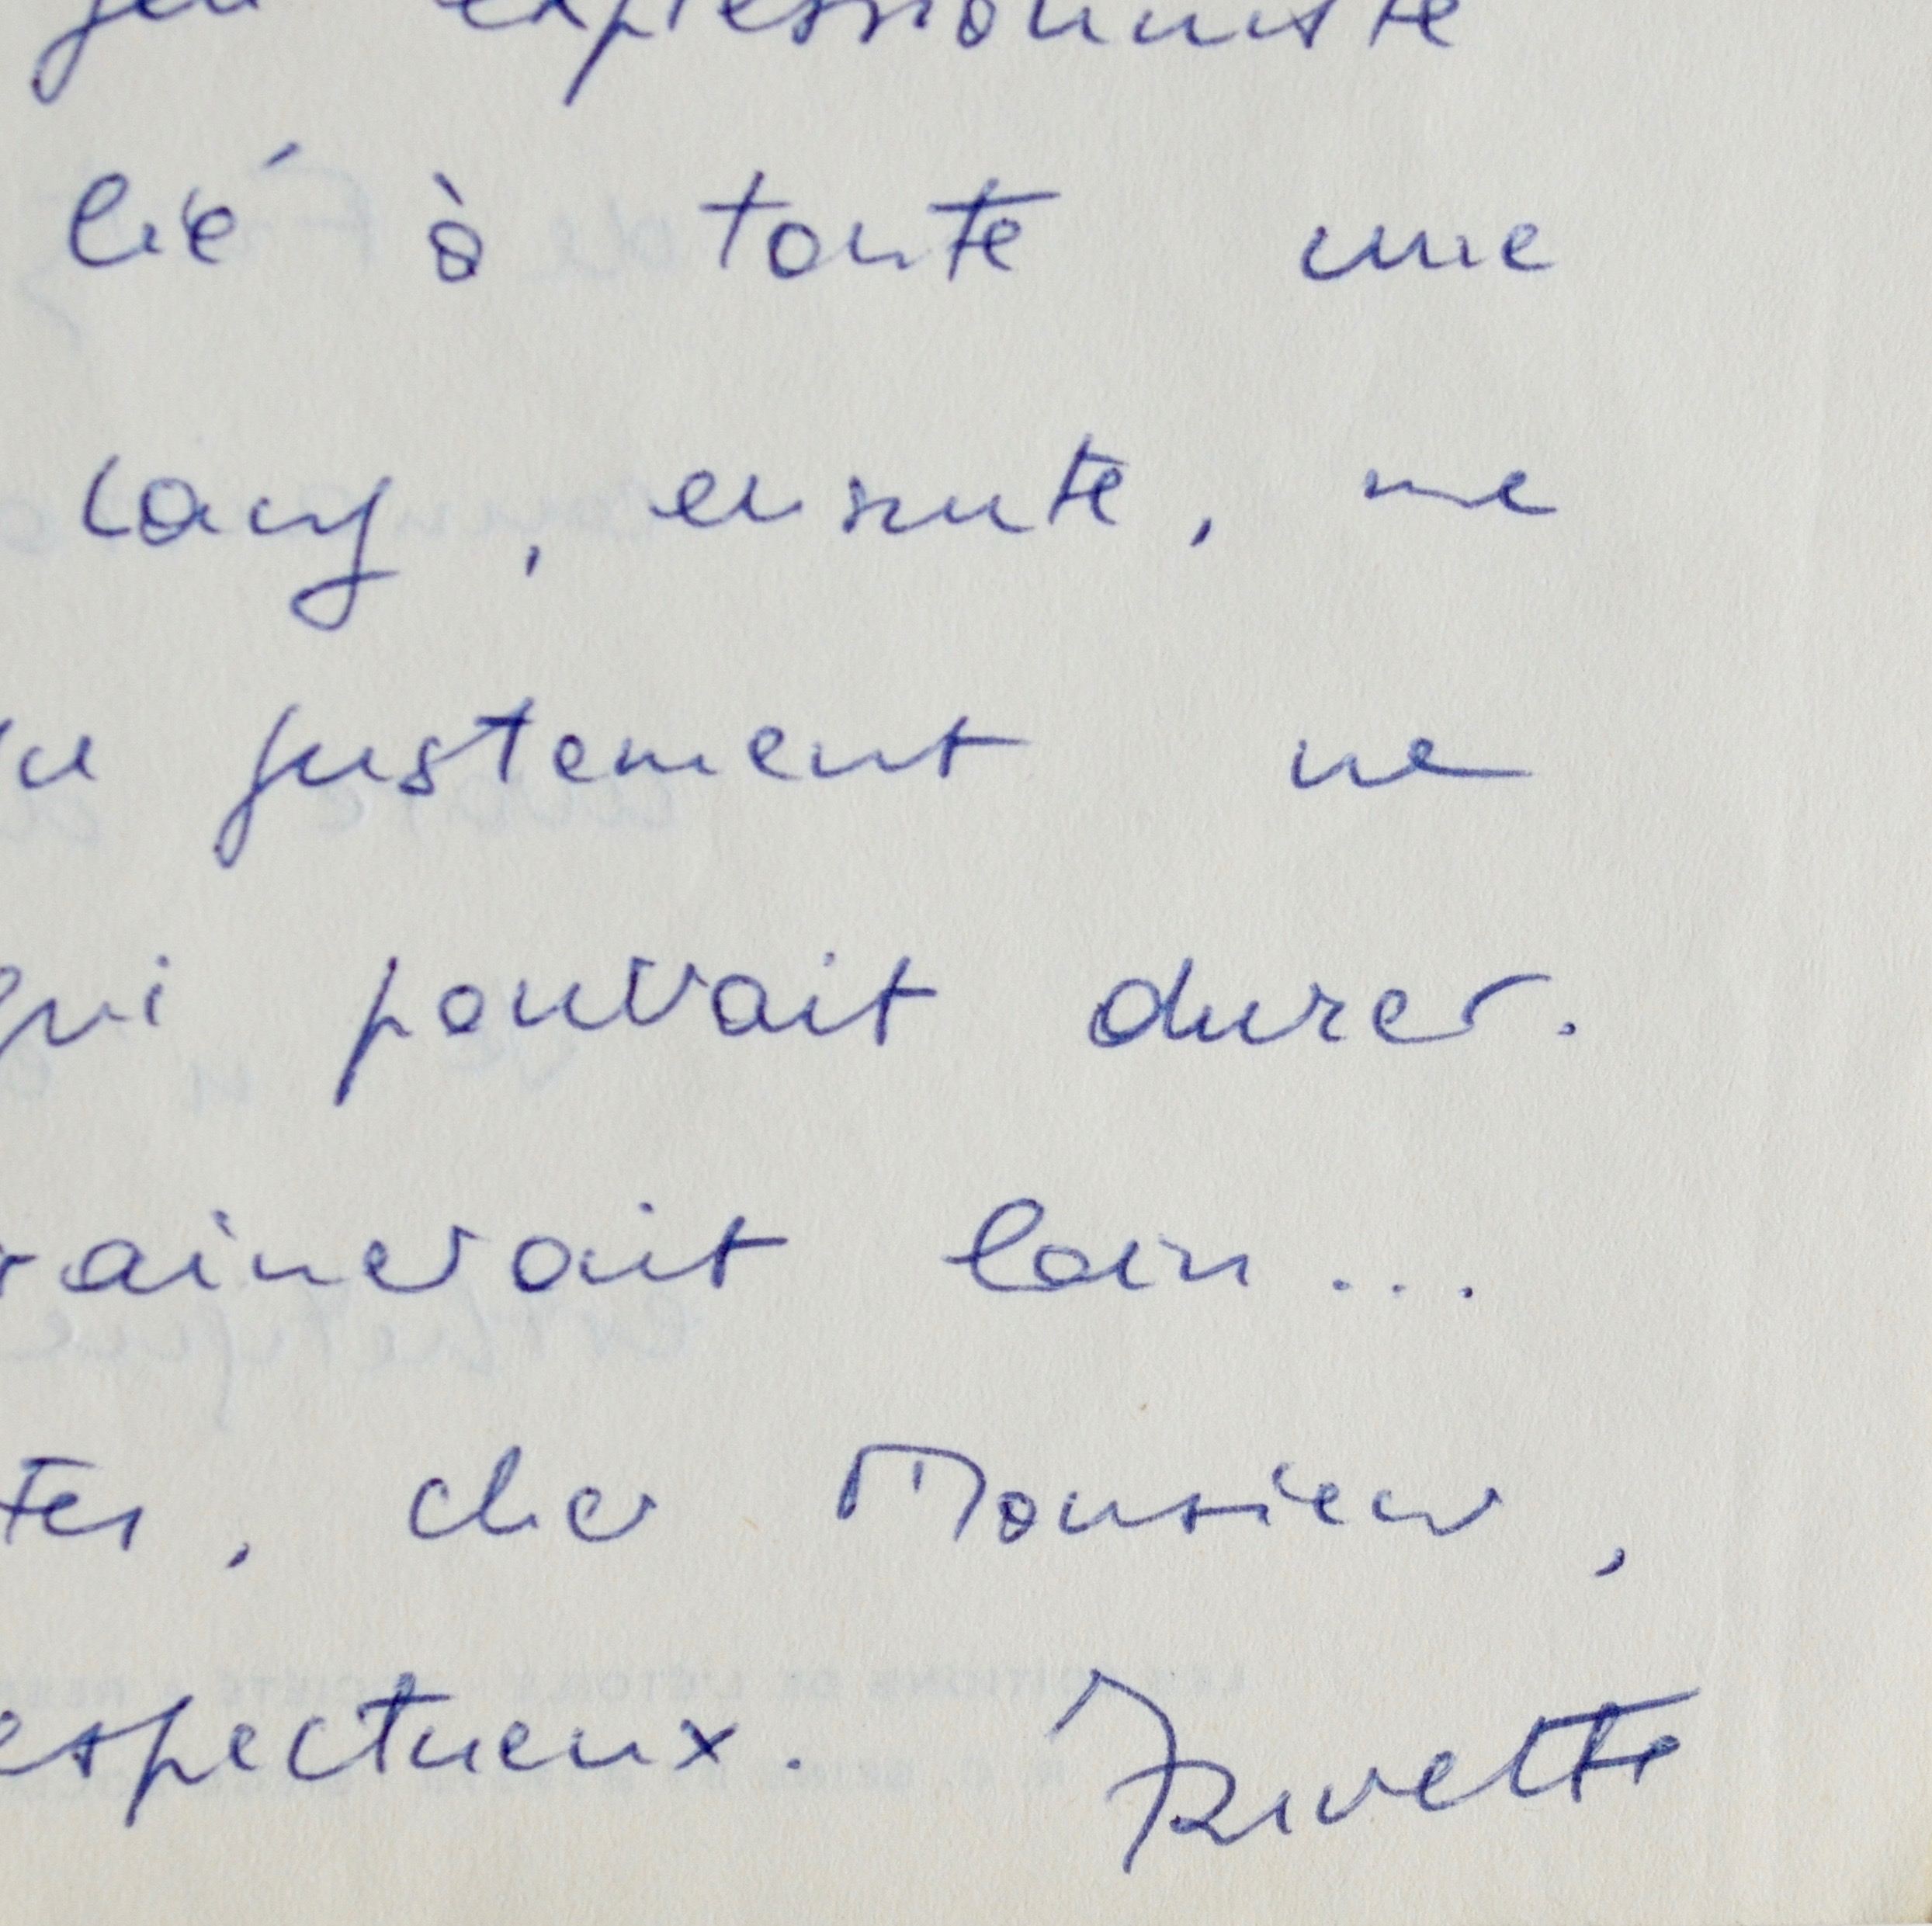 jeu expressionniste
lié à toute une
Lang, ensuite, me
justement ne
qui pouvait durer.
rainerait loin...
tes, cher Monsieur,
espectueux. JRivette